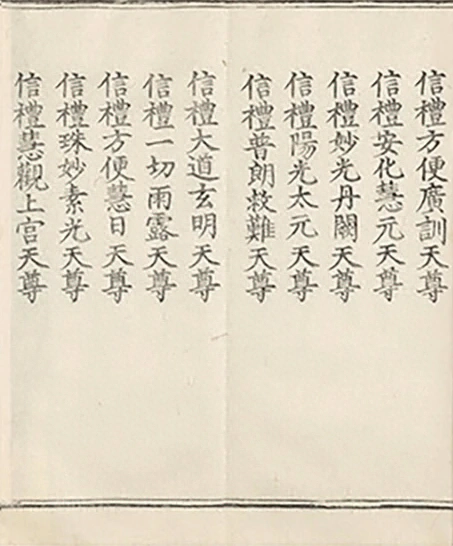 信禮方便廣訓天尊
信禮安化慧元天尊
信禮妙光丹闕天尊
信禮陽光太元天尊
信禮普朗救難天尊
信禮大道玄明天尊
信禮一切雨露天尊
信禮方便慧日天尊
信禮珠妙素光天尊
信禮慧觀上宫天尊